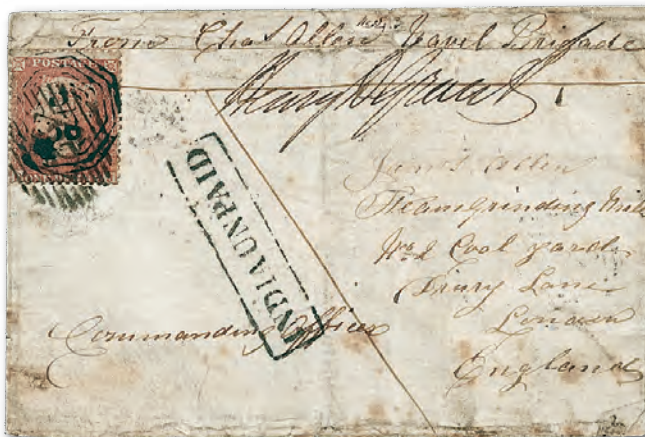 From Chas Allen Navel Brigade
POSTAGE
INDIA UNPAID
James Allen
Steamgrinding Mills
No 2 Coal yard
Drury Lane
London
England
Commanding Officer